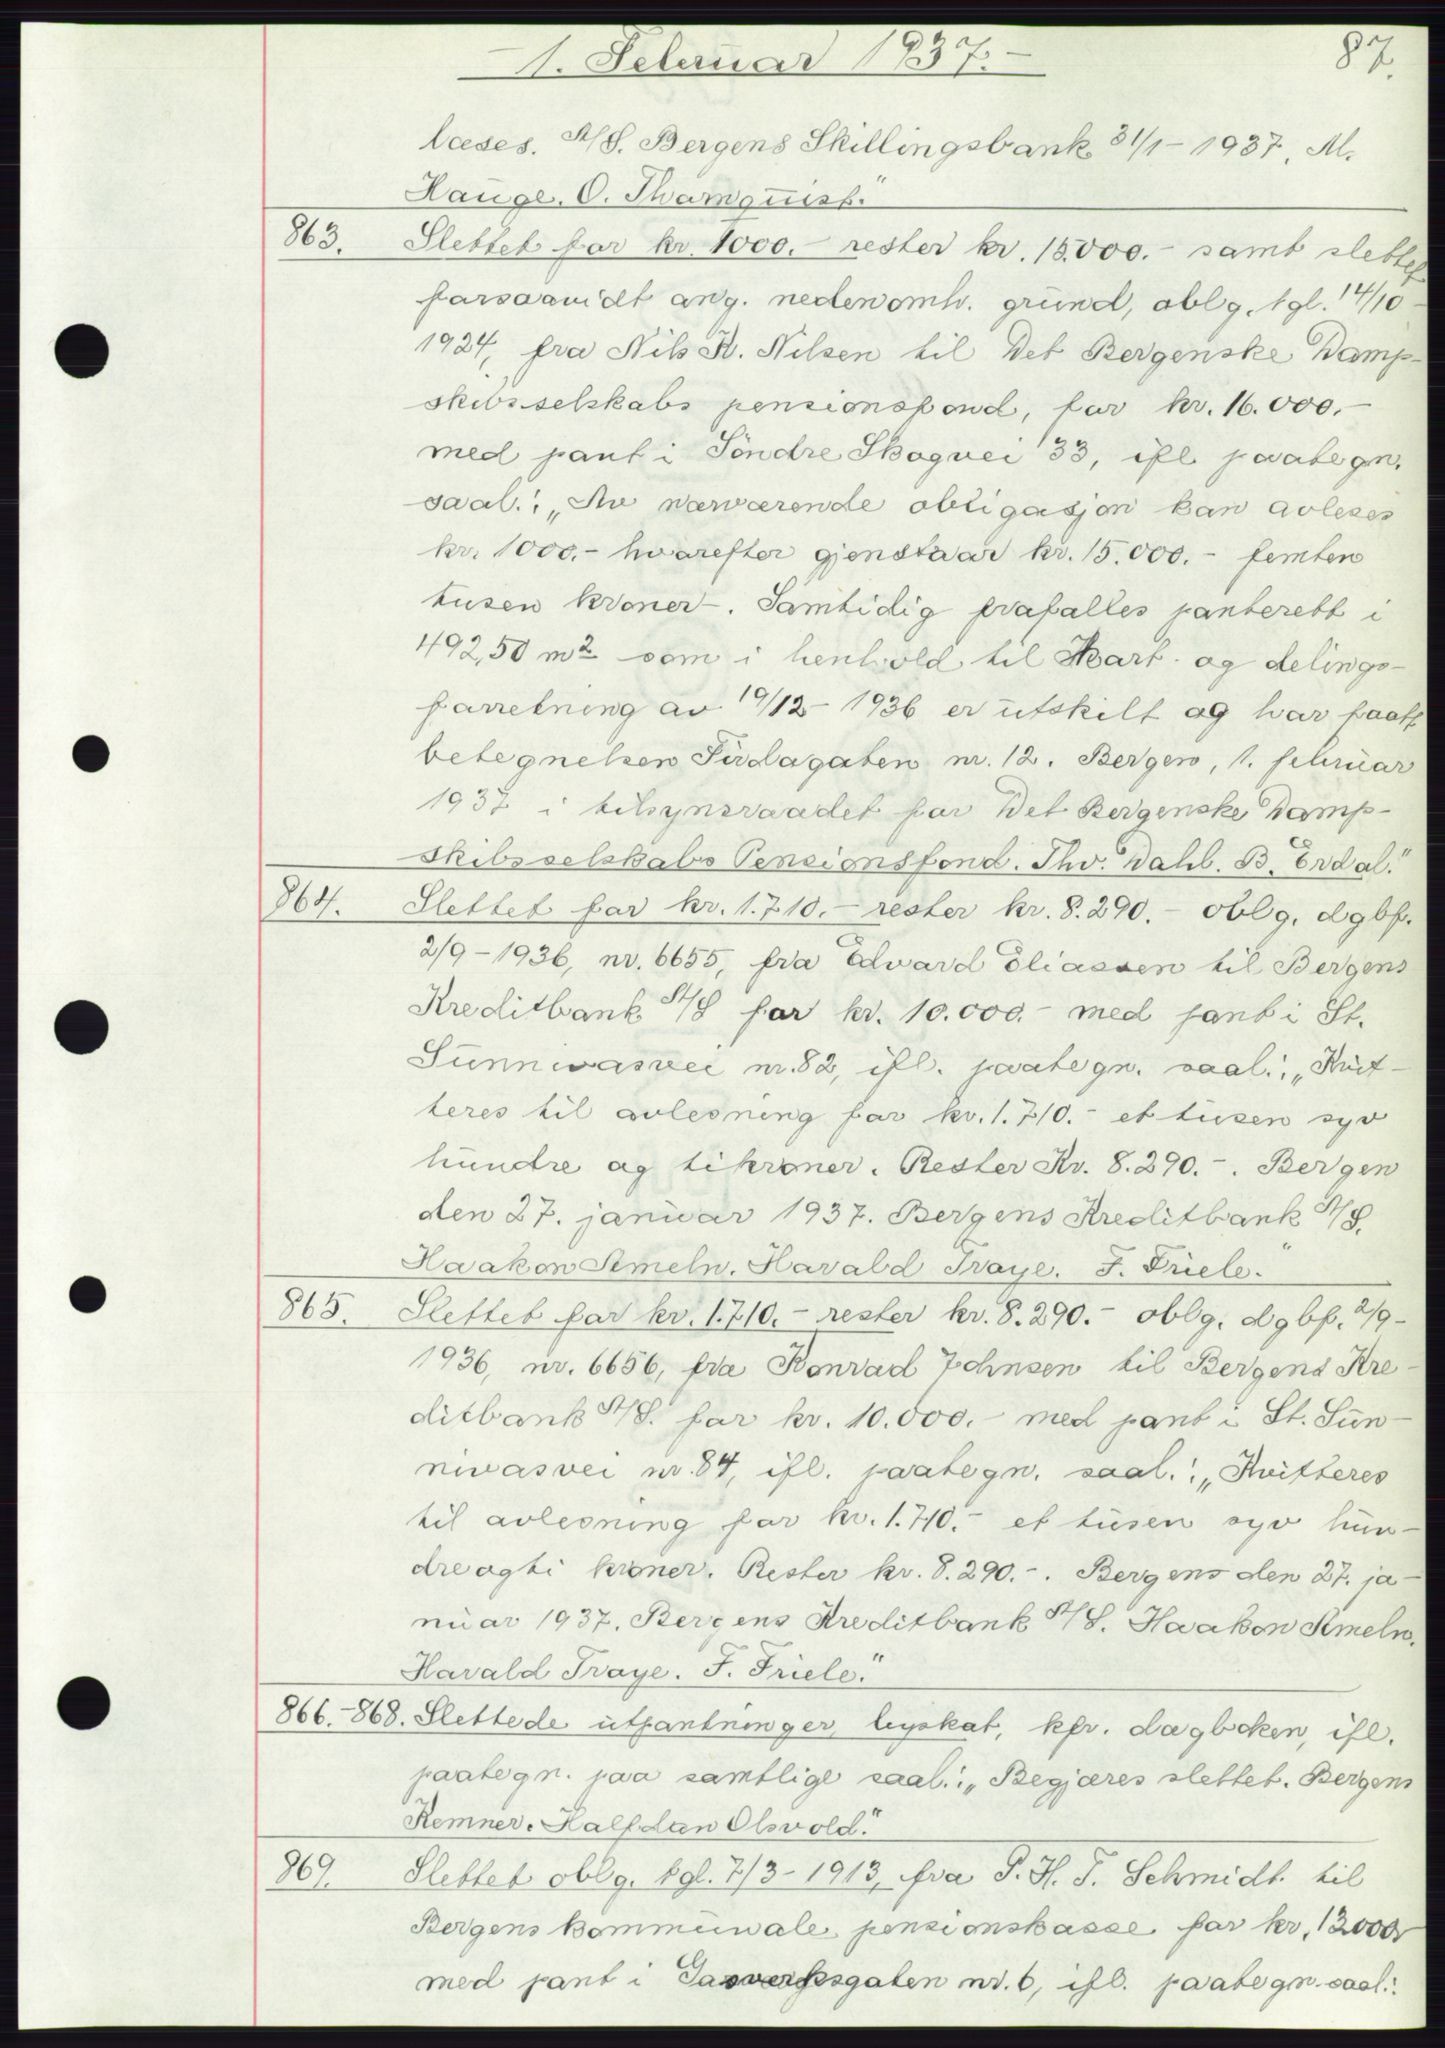 - 1. Februar 1937. -
87.
læses. A/S. Bergens Skillingsbank 31/1 - 1937. M.
Hauge. O. Thamquist."
863. Slettet for kr. 1000.- rester kr. 15.000.- samt slettet
forsaavidt ang. nedenomh. grund, oblg. tgl. 14/10 -
1924, fra Nils K. Nilsen til Det Bergenske Damp-
skibsselskabs pensionsfond, for kr. 16.000.-
med pant i Søndre Skogvei 33, ifl. paategn.
saal.: „Av nærværende obligasjon kan avleses
kr. 1000.- hvorefter gjenstaar kr. 15.000.- femten
tusen kroner-. Samtidig frafalles panterett i
492,50 m2 som i henhold til Kart- og delings-
forretning av 19/12 - 1936 er utskilt og har faatt
betegnelsen Firdagaten nr. 12. Bergen, 1. februar
1937 i tilsynsraadet for Det Bergenske Damp-
skibsselskabs Pensionsfond. Thv. Dahl. B. Erdal."
864. Slettet for kr. 1.710.- rester kr. 8.290.- oblg. dgbf.
2/9 - 1936, nr. 6655, fra Edvard Eliassen til Bergens
Kreditbank A/S for kr. 10.000.- med pant i St.
Sunnivasvei nr. 82, ifl. paategn. saal.: „Kvit-
teres til avlesning for kr. 1.710.- et tusen syv
hundre og ti kroner. Rester Kr. 8.290.-. Bergen
den 27. januar 1937. Bergens Kreditbank A/S.
Haakon Ameln. Harald Traye. F. Friele."
865. Slettet for kr. 1.710.- rester kr. 8.290.- oblg. dgbf. 2/9 -
1936, nr. 6656, fra Konrad Johnsen til Bergens Kre-
ditbank A/S. for kr. 10.000.- med pant i St. Sun-
nivasvei nr. 84, ifl. paategn. saal.: „Kvitteres
til avlesning for kr. 1.710.- et tusen syv hun-
dre og ti kroner. Rester kr. 8.290.-. Bergens den 27. ja-
nuar 1937. Bergens Kreditbank A/S. Haakon Ameln.
Harald Traye. F. Friele."
866.-868. Slettede utpantninger, byskat, kfr. dagboken, ifl.
paategn. paa samtlige saal.: „Begjæres slettet. Bergens
Kemner. Halfdan Olsvold."
869. Slettet oblg. tgl. 7/3 - 1913, fra P. H. T. Schmidt til
Bergens kommunale pensionskasse for kr. 12000
med pant i Gasverksgaten nr. 6, ifl. paategn. saal.: